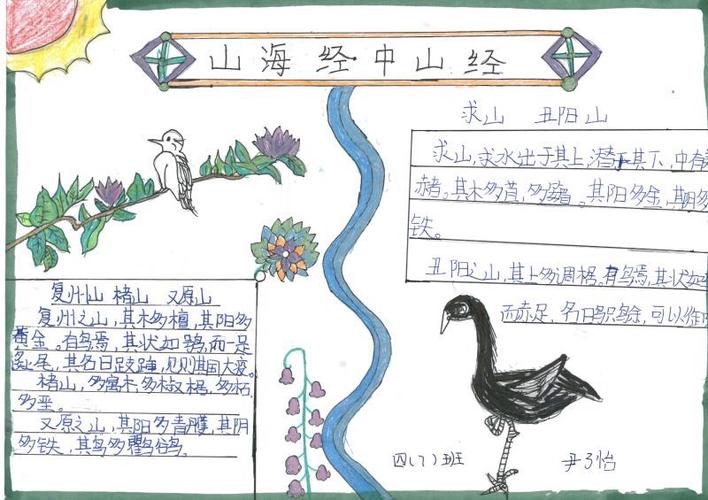 山海经中山经
复州山 楮山 又原山
复州之山,其木多檀,其阳多
黄金。有鸟焉,其状如鸮,而一足
彘尾,其名曰跂踵,见则其国大疫。
楮山,多寓木,多椒椐,多柘,
多垩。
又原之山,其阳多青雘,其阴
多铁,其鸟多鸜鹆。
求山 丑阳山
求山,求水出于其上,潜于其下,中有
赭。其木多苴,多。其阳多金,其阴多
铁。
丑阳之山,其上多椆椐。有鸟焉,其状如
而赤足,名曰,可以御
四(7)班 尹子怡